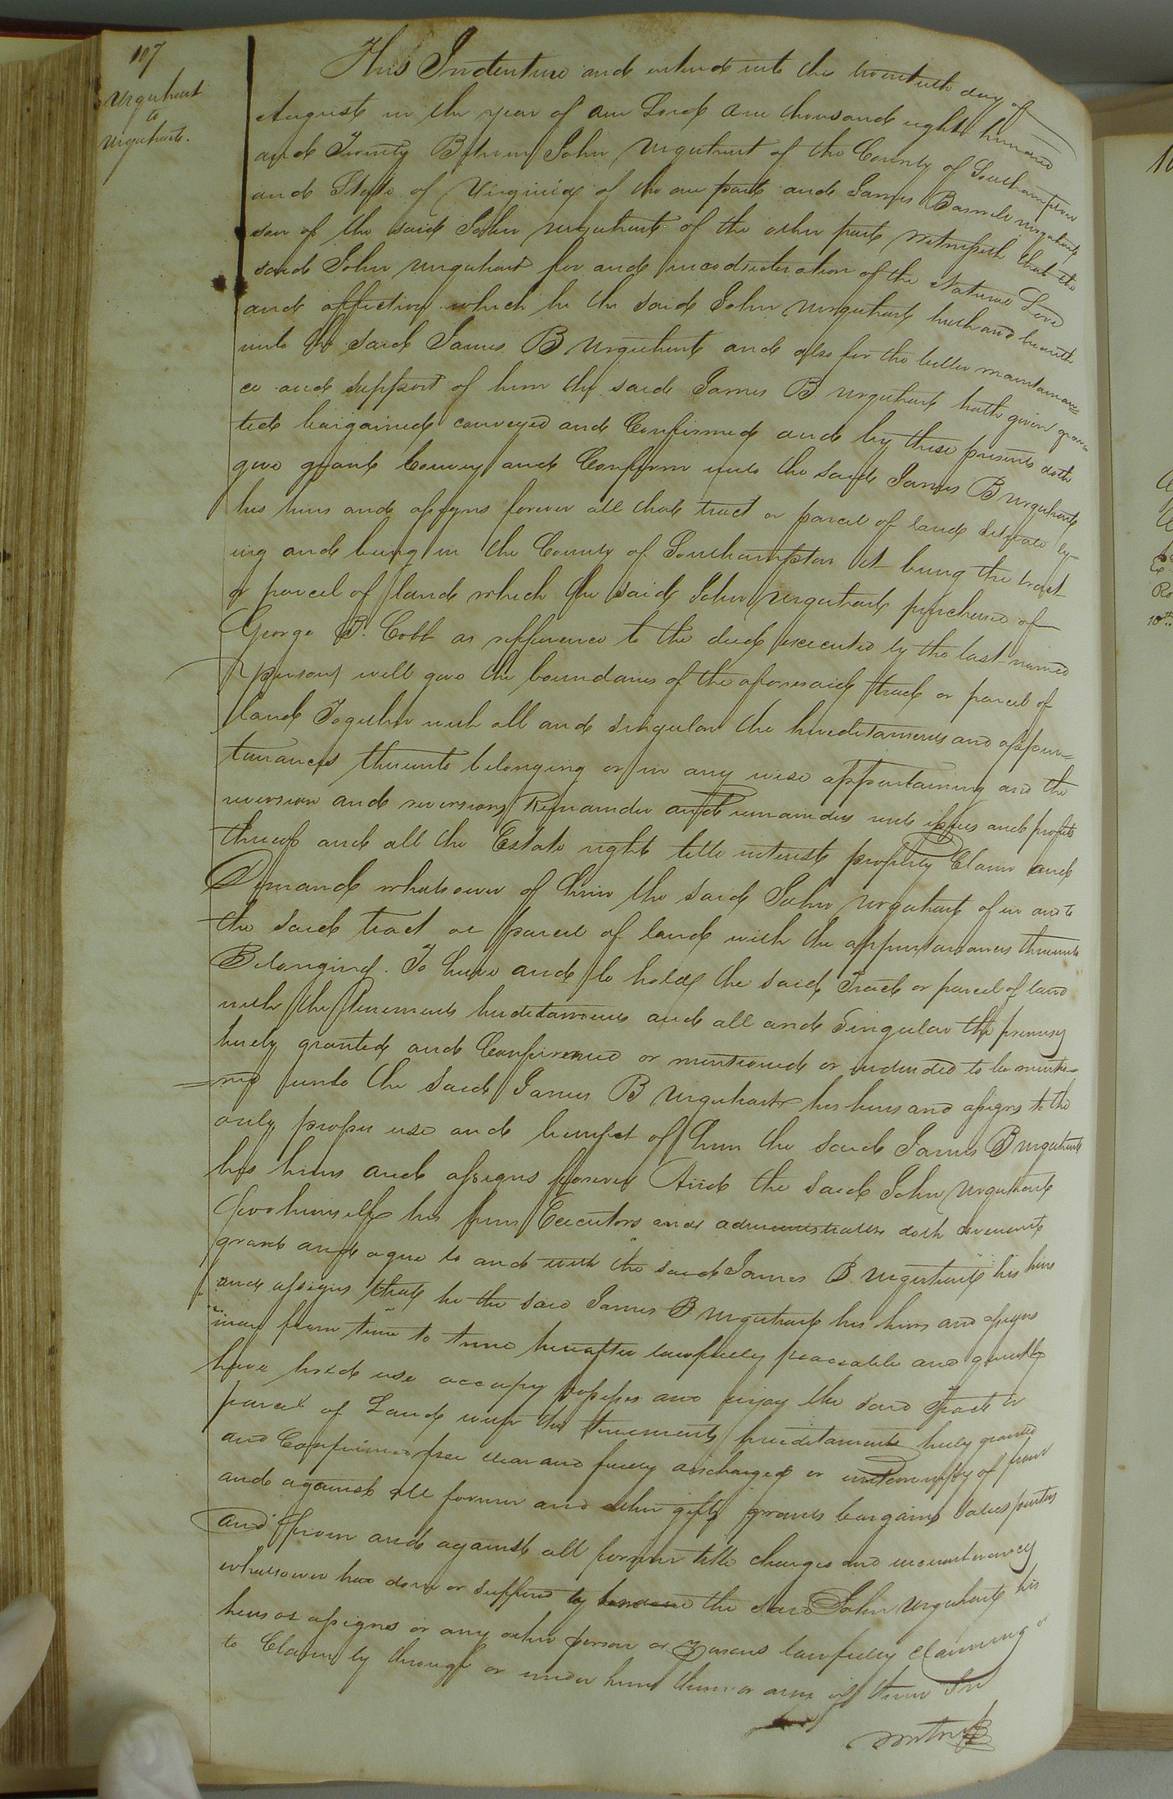 107
Urquhart
to
Urquhart.
This Indenture made and entered into this twentieth day of
August in the year of our Lord one thousand eight hundred
and Twenty Between John Urquhart of the County of Southampton
and State of Virginia of the one part and James Barnede Urquhart
son of the said John Urquhart of the other part witnesseth that the
said John Urquhart for and inconsideration of the Natural Love
and affection which he the said John Urquhart hath and beareth
unto the said James B Urquhart and also for the better maintainan=
ce and support of him the said James B Urquhart hath given gran=
ted bargained conveyed and Confirmed and by these presents doth
give grant Convey and Confirm unto the said James B Urquhart
his heirs and assigns forever all that tract or parcel of land situate ly-
ing and being in the County of Southampton it being the tract
or parcel of land which the said John Urquhart purchased of
George B. Cobb as refference to the deed executed by the last named
person will give the boundaries of the aforesaid track or parcel of
land Together with all and singular the hereditaments and appur=
tenances thereunto belonging or in any wise appertaining and the
reversion and reversions Remainder and remainders and issues and profits
thereof and all the Estate right title interest property Claim and
Demand whatsoever of him the said John Urquhart of in and to
the said tract or parcel of land with the appurtanances thereunto
Belonging. To have and to hold the said Tract or parcel of land
with the tenements hereditaments and all and Singular the premises
hereby granted and Confirmed or mentioned or intended to be mentio=
=ned unto the said James B Urquhart his heirs and assigns to the
only proper use and benefit of him the said James B Urquhart
his heirs and assigns forever And the said John Urquhart
for himself his heirs Executors and administrators doth covenant
grant and agree to and with the said James B Urquhart his heirs
and assigns that he the said James B Urquhart his heirs and assigns
may from time to time hereafter lawfully peaceable and quietly
have hold use occupy possess and enjoy the said Tract or
parcel of Land with the tenements hereditaments hereby granted
and Confirmed free clear and freely discharged or indemnify of from
and against all former and other gifts grants bargains Sales
and from and against all former title charges and incumberancy
whatsoever had done or suffered by the said John Urquhart his
heirs or assigns or any other person or Persons lawfully claiming or
to Claim by through or under him them or any of them In
witness